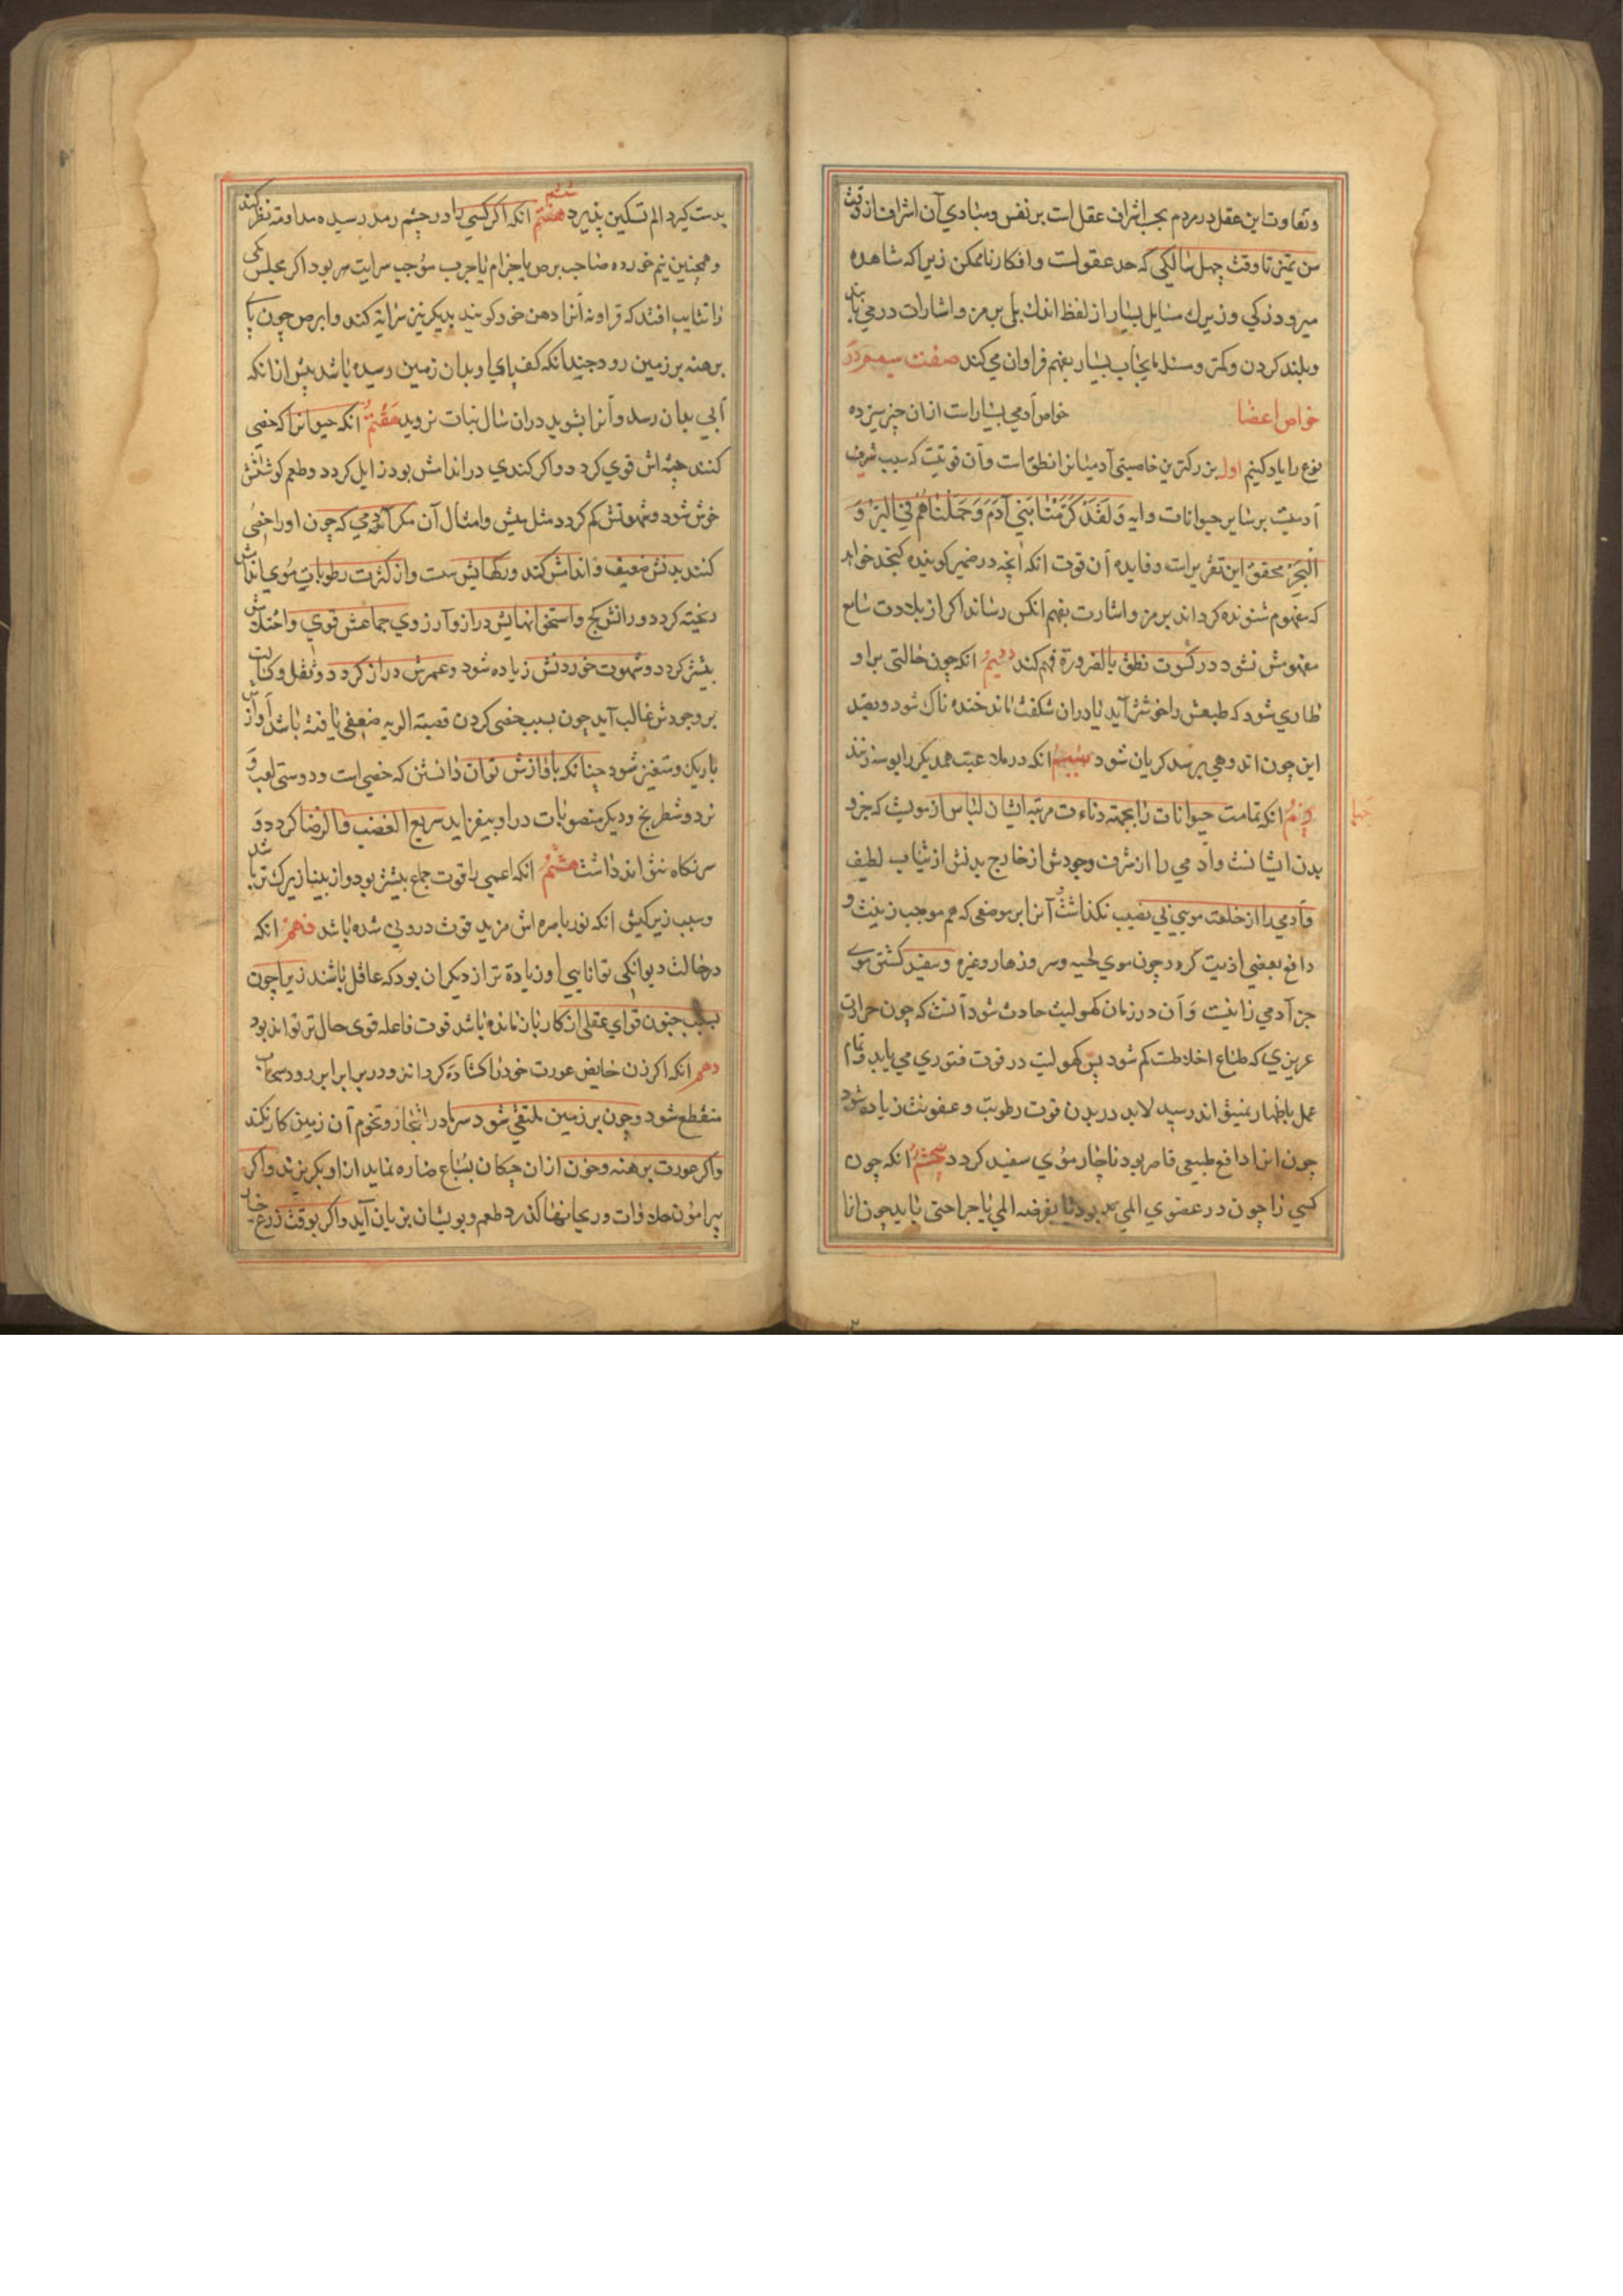 وتفاوت این عقل در مردم بحسب اشراف عقل است بر نفس ومبادی آن اشراف از وقت
سن تمیز تا وقت چهل سالگی که حد عقولست وافکار ناممکن زیرا که مشاهده
میرود زکی وزیرک مسایل بسیار از لفظ اندک بلی برمز واشارات در می یابد
وبلند کردن ومکرر وسئله بایجاب بسیار بفهم فراوان می کند صفت سیم در
خواص اعضا خواص آدمی بسیار است از ان جز سیزده
نوع را یاد کنیم اول بزرگترین خاصیتی آدمیانرا نطق است وآن قوتیست که سبب شرف
آدمیت بر سایر حیوانات وایه وَلَقَدْ كَرَّمْنَا بَنِي آدَمَ وَحَمَلْنَاهُمْ فِي الْبَرِّ وَ
الْبَحْرِ محقق این تقریر است وفایده آن قوت انکه انچه در ضمیر کوینده کنجد خواهد
که مفهوم شنونده کرداند برمز واشارت بفهم انکس رساند اکر از بلادت سامع
مفهومش نشود در کسوت نطق بالضرورة فهم کند دویم انکه چون حالتی بر او
طاری شود که طبعش را خوش آید یا دران شکفت ماند خنده ناک شود وبضد
این چون اندوهی برسد کریان شود سیم انکه در ملاعبت همدیکر را بوسه زنند
چهارم انکه تمامت حیوانات را بجهته دناءت مرتبه ایشان لباس از مویست که جزو
بدن ایشانست وآدمی را از شرف وجودش از خارج بدنش از ثیاب لطیف
وآدمی را از خلعت مویی بی نصیب نکذاشت آنرا بر موضعی که هم موجب زینت و
دافع بعضی اذیت کرد چون موی لحیه وسر وزهار وغیره وسفید کشتن موی
جز آدمی را نیست وآن در زمان کهولیت حادث شود آنست که چون حرارت
عریزی که طباع اخلاطست کم شود بس کهولیت در قوت فتوری می یابد وتمام
عمل باظهار نمیتواند رسید لابد در بدن قوت رطوبت وعفونت زیاده شود
چون انرا دافع طبیعی قاصر بود ناچار موی سفید کردد پنجم انکه چون
کسی را چون در عضوی المی بود تا بغرضه المی یا جراحتی یابد چون انرا
چهار
بدست کیرد الم تسکین پذیرد ششم هفتم انکه اکر کسی را در چشم رمد رسیده مداومه نظر کند
وهمچنین نیم خورده صاحب برص یا جزام یا جرب موجب سرایت مر بود اکر مجلس یکی
را تثایب افتد که قراونه آنرا دهن خود کویند بدیکر نیز سرایة کند وابرص چون پای
برهنه بر زمین رود چندانکه کف پای او بدان زمین رسیده باشد بیش از انکه
آبی بدان رسد وآنرا بشوید دران سال نبات نروید هفتم انکه حیوانرا که خصی
کنند جثه اش قوی کردد واکر کندی در انداش بود زایل کردد وطعم کوشتش
خوش شود وشهوتش کم کردد مثل میش وامثال آن مکر آدمی که چون او را خصی
کنند بدنش ضعیف واندامش کند ورکهایش سست واز کثرت رطوبات موی اندامش
ریخته کردد ورانش کج واستخوانهایش دراز وآرزوی جماعش قوی واحتلامش
بیشتر کردد وشهوت خوردنش زیاده شود وعمرش دراز کردد وثقل وکسالت
بر وجودش غالب آید چون بسبب خصی کردن قصبته الریه ضعیفی یافته باشد آوازش
باریک ومتغیر شود چنانکه باوازش توان دانستن که خصی است ودوستی لعب و
نرد وشطرنج ودیکر منصوبات در او بیفزاید سریع الغضب والرضا کردد و
سر نکاه نتواند داشت هشتم انکه اعمی را قوت جماع بیشتر بود واز بینا زیرک تر باشد
وسبب زیرکیش انکه نور باصره اش مزید قوت درونی شده باشد نهم انکه
در حالت دیوانکی توانایی او زیادة تر از دیکران بود که عاقل باشند زیرا چون
بسبب جنون قوای عقلی از کار بازمانده باشد قوت فاعله قوی حال تر تواند بود
دهم انکه اکر زن حایض عورت خود را کشاده کرداند ودر برابر ابر رود سحاب
منقطع شود وچون بر زمین ملتقی شود سرما در اشجار وتخوم آن زمین کار نکند
واکر عورت برهنه وخون ازان چکان بسباع ضاره نماید از او بکریزند واکر
پیرامون حلاوات وریحانها کذرد طعم وبویشان بزیان آید واکر بوقت زرع خیار